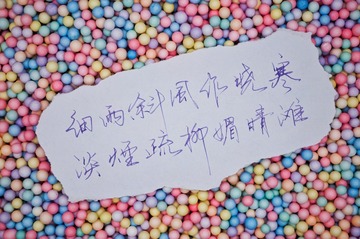 细雨斜风作晓寒
淡烟疏柳媚晴滩